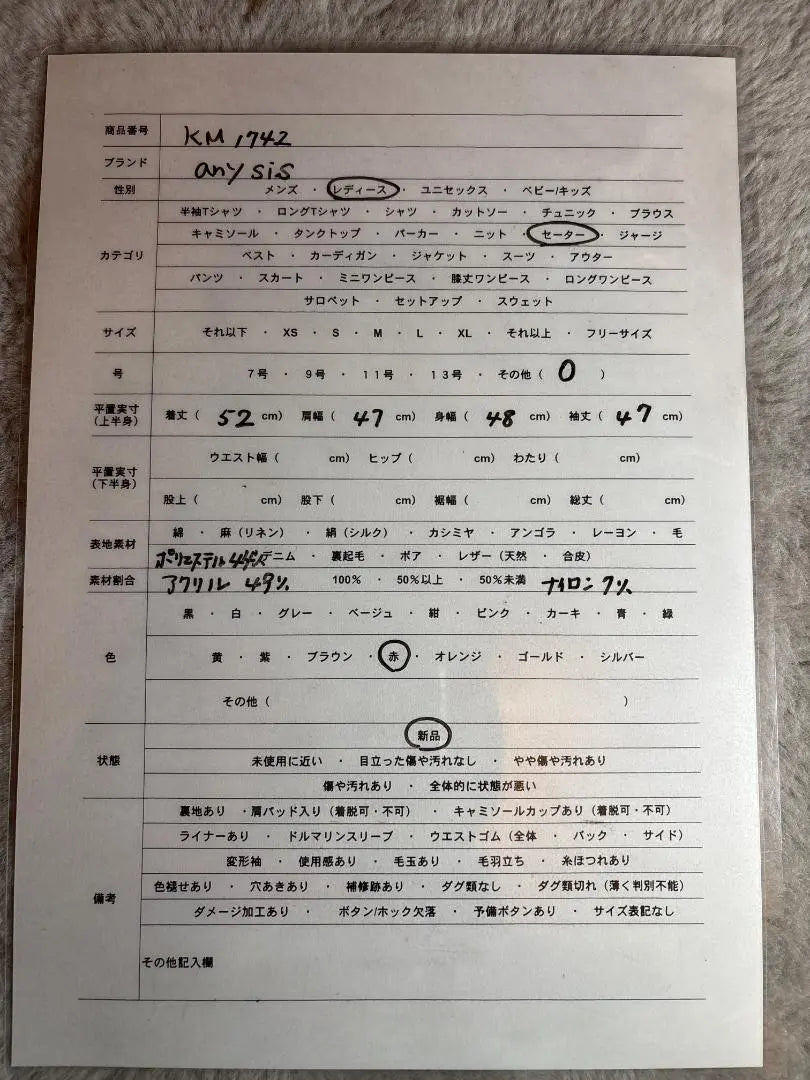 商品番号 KM1742
ブランド any sis
性別 メンズ ・ レディース ・ ユニセックス ・ ベビー/キッズ
半袖Tシャツ ・ ロングTシャツ ・ シャツ ・ カットソー ・ チュニック ・ ブラウス
キャミソール ・ タンクトップ ・ パーカー ・ ニット ・ セーター ・ ジャージ
カテゴリ ベスト ・ カーディガン ・ ジャケット ・ スーツ ・ アウター
パンツ ・ スカート ・ ミニワンピース ・ 膝丈ワンピース ・ ロングワンピース
サロペット ・ セットアップ ・ スウェット
サイズ それ以下 ・ XS ・ S ・ M ・ L ・ XL ・ それ以上 ・ フリーサイズ
号 7号 ・ 9号 ・ 11号 ・ 13号 ・ その他( 0 )
平置実寸(上半身) 着丈( 52 cm) 肩幅( 47 cm) 身幅( 48 cm) 袖丈( 47 cm)
平置実寸(下半身) ウエスト幅( cm) ヒップ( cm) わたり( cm)
股上( cm) 股下( cm) 裾幅( cm) 総丈( cm)
表地素材 綿 ・ 麻(リネン) ・ 絹(シルク) ・ カシミヤ ・ アンゴラ ・ レーヨン ・ 毛
ポリエステル 44% デニム ・ 裏起毛 ・ ボア ・ レザー(天然 ・ 合皮)
素材割合 アクリル 49% 100% ・ 50%以上 ・ 50%未満 ナイロン 7%
黒 ・ 白 ・ グレー ・ ベージュ ・ 紺 ・ ピンク ・ カーキ ・ 青 ・ 緑
色 黄 ・ 紫 ・ ブラウン ・ 赤 ・ オレンジ ・ ゴールド ・ シルバー
その他( )
新品
状態 未使用に近い ・ 目立った傷や汚れなし ・ やや傷や汚れあり
傷や汚れあり ・ 全体的に状態が悪い
裏地あり ・肩パッド入り(着脱可・不可) ・ キャミソールカップあり(着脱可・不可)
ライナーあり ・ ドルマリンスリーブ ・ ウエストゴム(全体 ・ バック ・ サイド)
変形袖 ・ 使用感あり ・ 毛玉あり ・ 毛羽立ち ・ 糸ほつれあり
備考 色褪せあり ・ 穴あきあり ・ 補修跡あり ・ ダグ類なし ・ ダグ類切れ(薄く判別不能)
ダメージ加工あり ・ ボタン/ホック欠落 ・ 予備ボタンあり ・ サイズ表記なし
その他記入欄